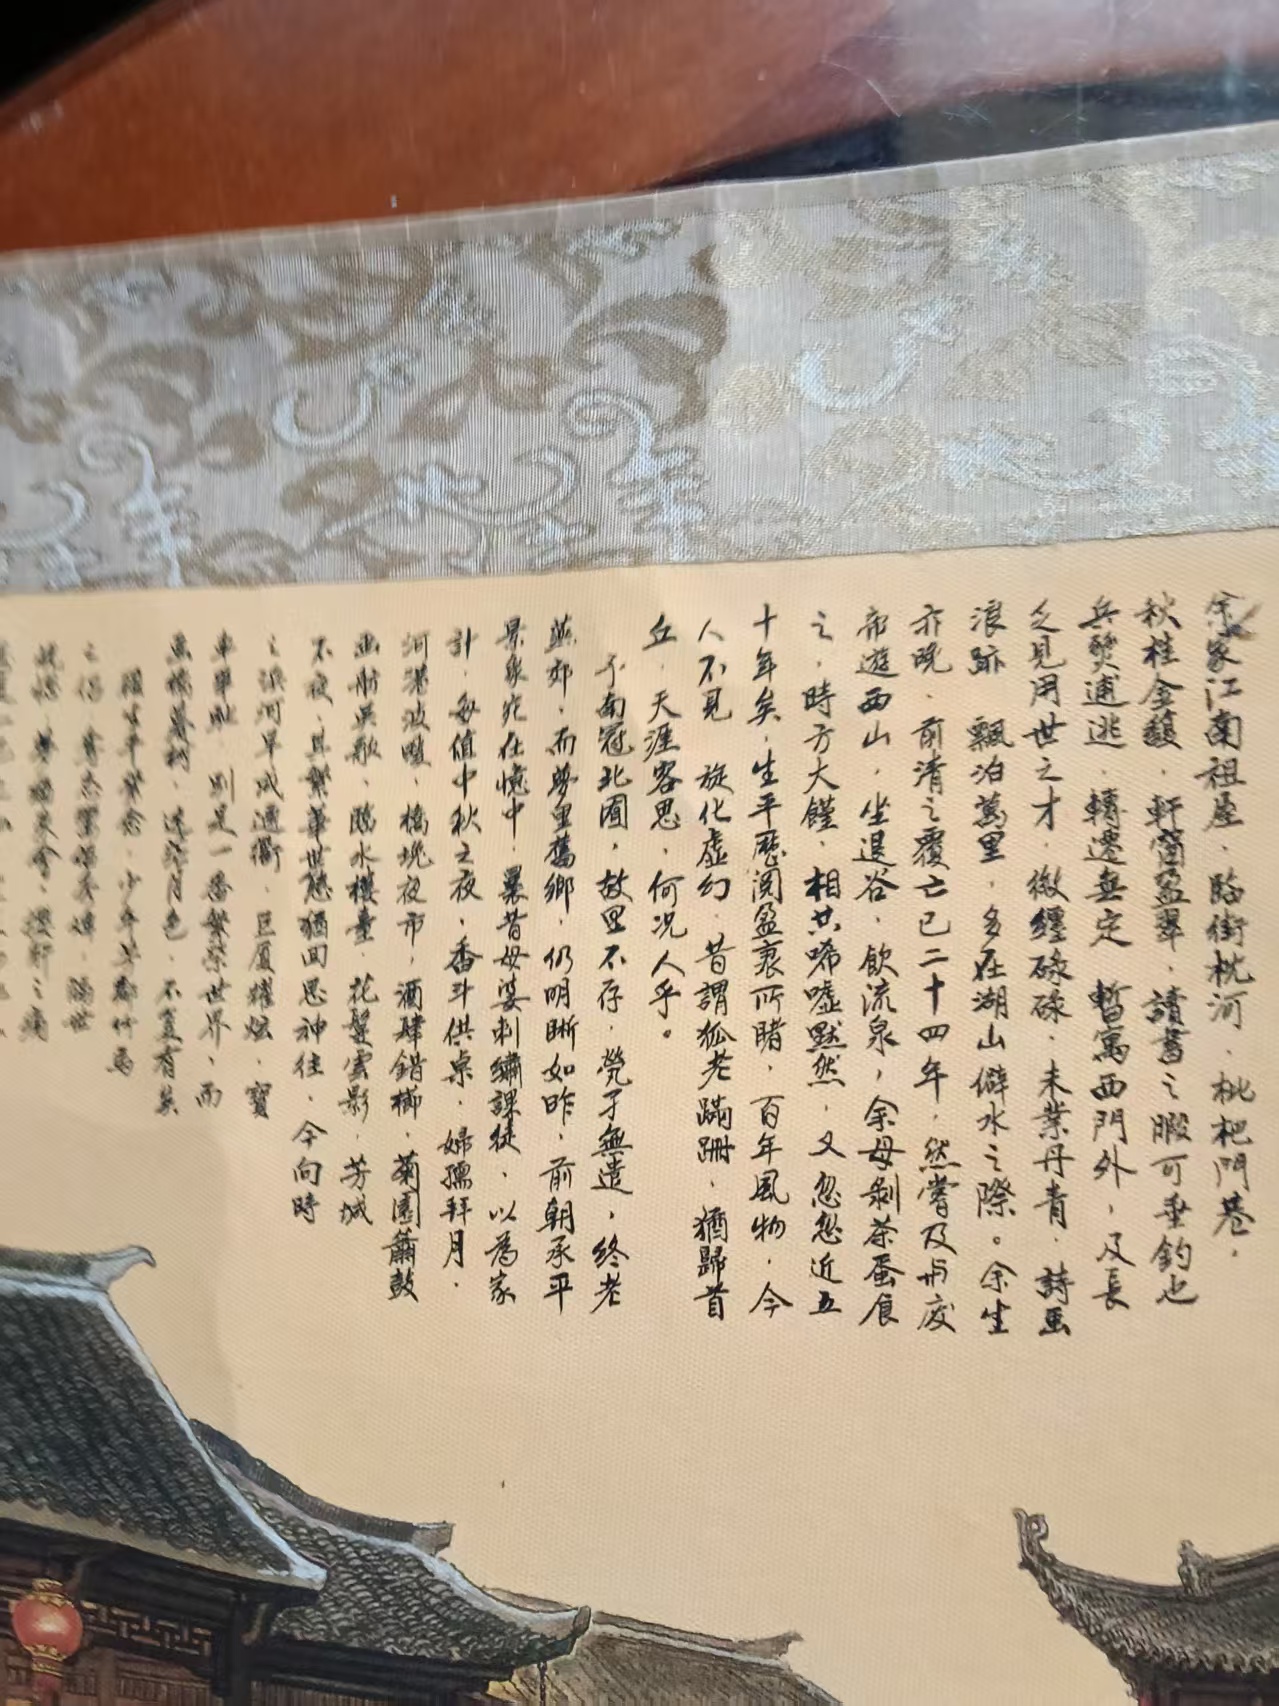 余家江南祖屋、臨街枕河、枇杷門巷，
秋桂金馥、軒窗盈翠、讀書之暇可垂釣也
兵燹逋逃、轉遷無定 暫寓西門外，及長
乏見用世之才、繳纏碌碌、未業丹青、詩画
浪跡 飄泊萬里、多在湖山僻水之際。余生
亦晚、前清之覆亡已二十四年，然嘗及
遊西山，坐退谷、飲流泉，余母剝茶蛋食
之，時方大饉、相共唏噓默然，又忽忽近五
十年矣，生平歷閱盈衰所睹，百年風物，今
人不見 旋化虛幻、昔謂狐老蹣跚、猶歸首
丘，天涯客思，何況人乎。
予南冠北囿，故里不存，煢孑無遺，終老
燕郊，而夢里舊鄉，仍明晰如昨，前朝承平
景象宛在憶中、曩昔母婆刺繡課徒、以為家
計，每值中秋之夜，香斗供桌，婦孺拜月，
河漾波曖、橋堍夜市，酒肆錯櫛、菊園簫鼓
画舫吳歌、臨水樓臺、花鬘雲影、芳城
不夜、其繁華世態猶回思神往，今向時
之濱河早成通衢、巨廈耀炫、寶
車，別是一番繁榮世界，而
月色，不复有矣
少年
之
夢